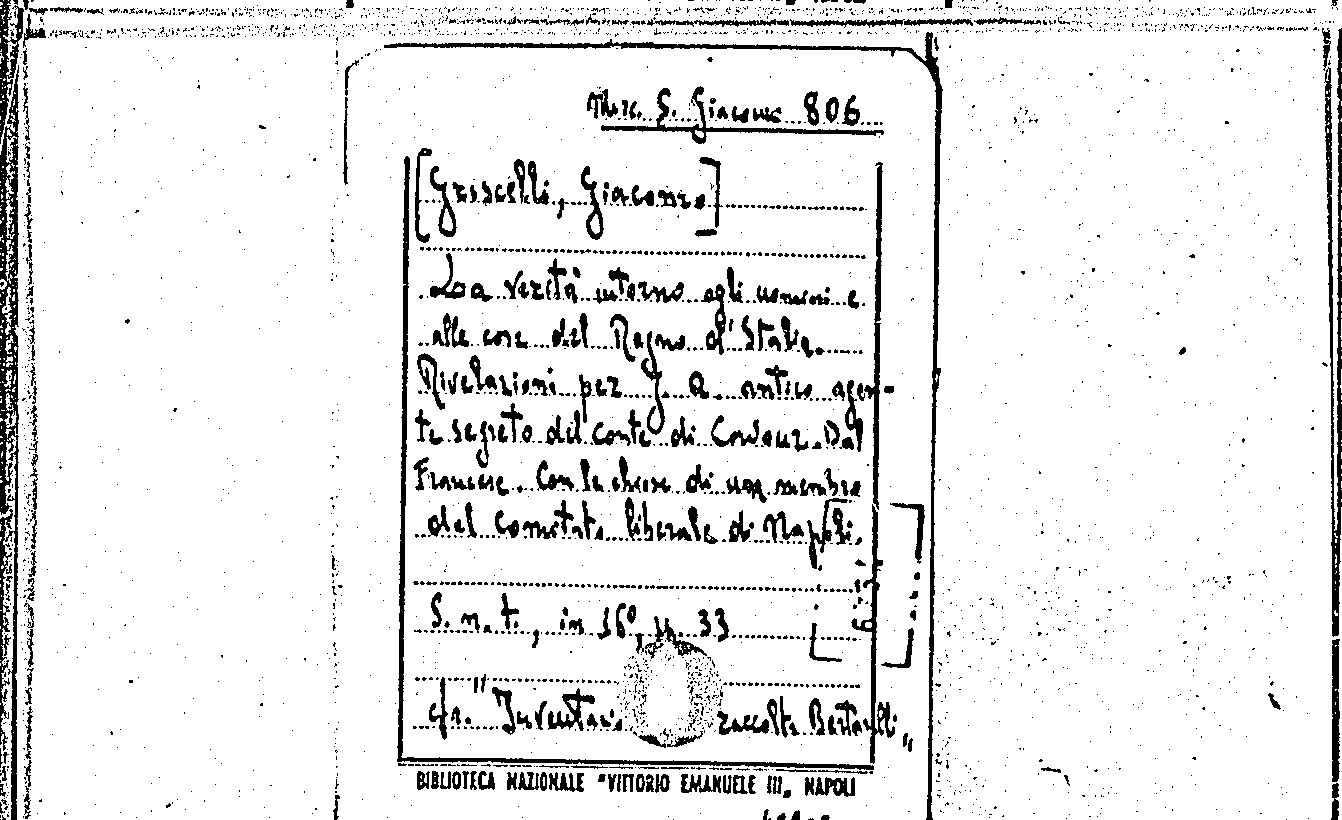 Misc. S. Giacomo 806
[Griscelli, Giacomo]
La verità intorno agli uomini e
alle cose del Regno d'Italia.
Rivelazioni per J. A. antico agen-
te segreto del conte di Cavour. Dal
Francese. Con le chiose di un membro
del Comitato liberale di Napoli.
S. n. t., in 16°, p. 33
cfr. "Inventario raccolta Bertarelli"
BIBLIOTECA NAZIONALE "VITTORIO EMANUELE III„ NAPOLI